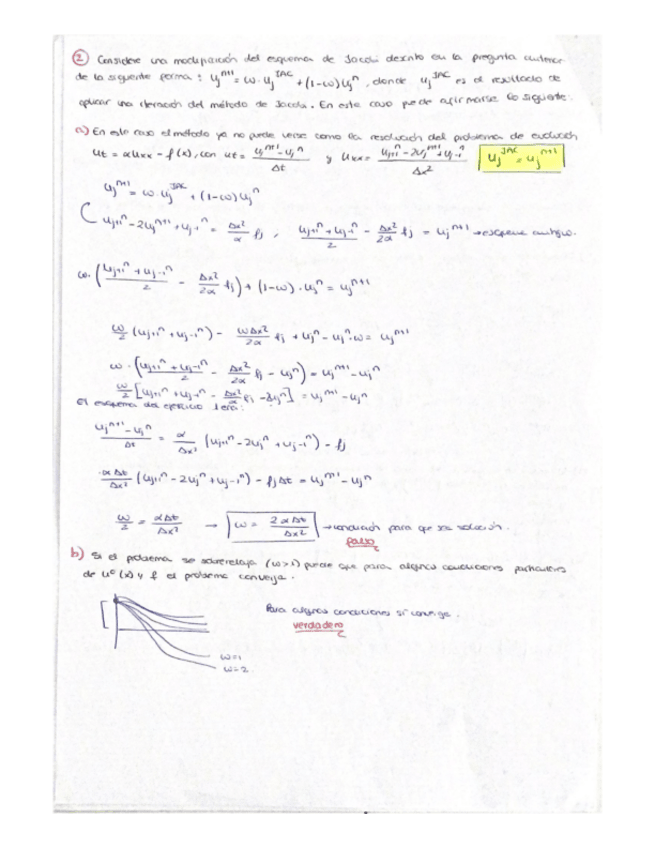 ② Considere una modificación del esquema de Jacobi descrito en la pregunta anterior
de la siguiente forma: uj^n+1 = ω·uj^JAC + (1-ω)uj^n, donde uj^JAC es el resultado de
aplicar una iteración del método de Jacobi. En este caso puede afirmarse lo siguiente:
a) En este caso el método ya no puede verse como la resolución del problema de evolución
ut = αuxx - f(x), con ut = (uj^n+1 - uj^n)/Δt y uxx = (uj+1^n - 2uj^n+1 + uj-1^n)/Δx² uj^JAC = uj^n+1
uj^n+1 = ω·uj^JAC + (1-ω)uj^n
uj+1^n - 2uj^n+1 + uj-1^n = Δx²/α fj , (uj+1^n + uj-1^n)/2 - Δx²/2α fj = uj^n+1 → esquema antiguo.
ω·((uj+1^n + uj-1^n)/2 - Δx²/2α fj) + (1-ω)·uj^n = uj^n+1
ω/2 (uj+1^n + uj-1^n) - ωΔx²/2α fj + uj^n - uj^n·ω = uj^n+1
ω·((uj+1^n + uj-1^n)/2 - Δx²/2α fj - uj^n) = uj^n+1 - uj^n
ω/2 [uj+1^n + uj-1^n - Δx²/α fj - 2uj^n] = uj^n+1 - uj^n
El esquema del ejercicio será:
(uj^n+1 - uj^n)/Δt = α/Δx² (uj+1^n - 2uj^n + uj-1^n) - fj
αΔt/Δx² (uj+1^n - 2uj^n + uj-1^n) - fjΔt = uj^n+1 - uj^n
ω/2 = αΔt/Δx² → ω = 2αΔt/Δx² → condición para que sea solución.
falso
b) Si el problema se sobrerelaja (ω>1) puede que para algunas condiciones particulares
de u⁰(x) y f el problema converja.
Para algunas condiciones sí converge.
verdadero
ω=1
ω=2